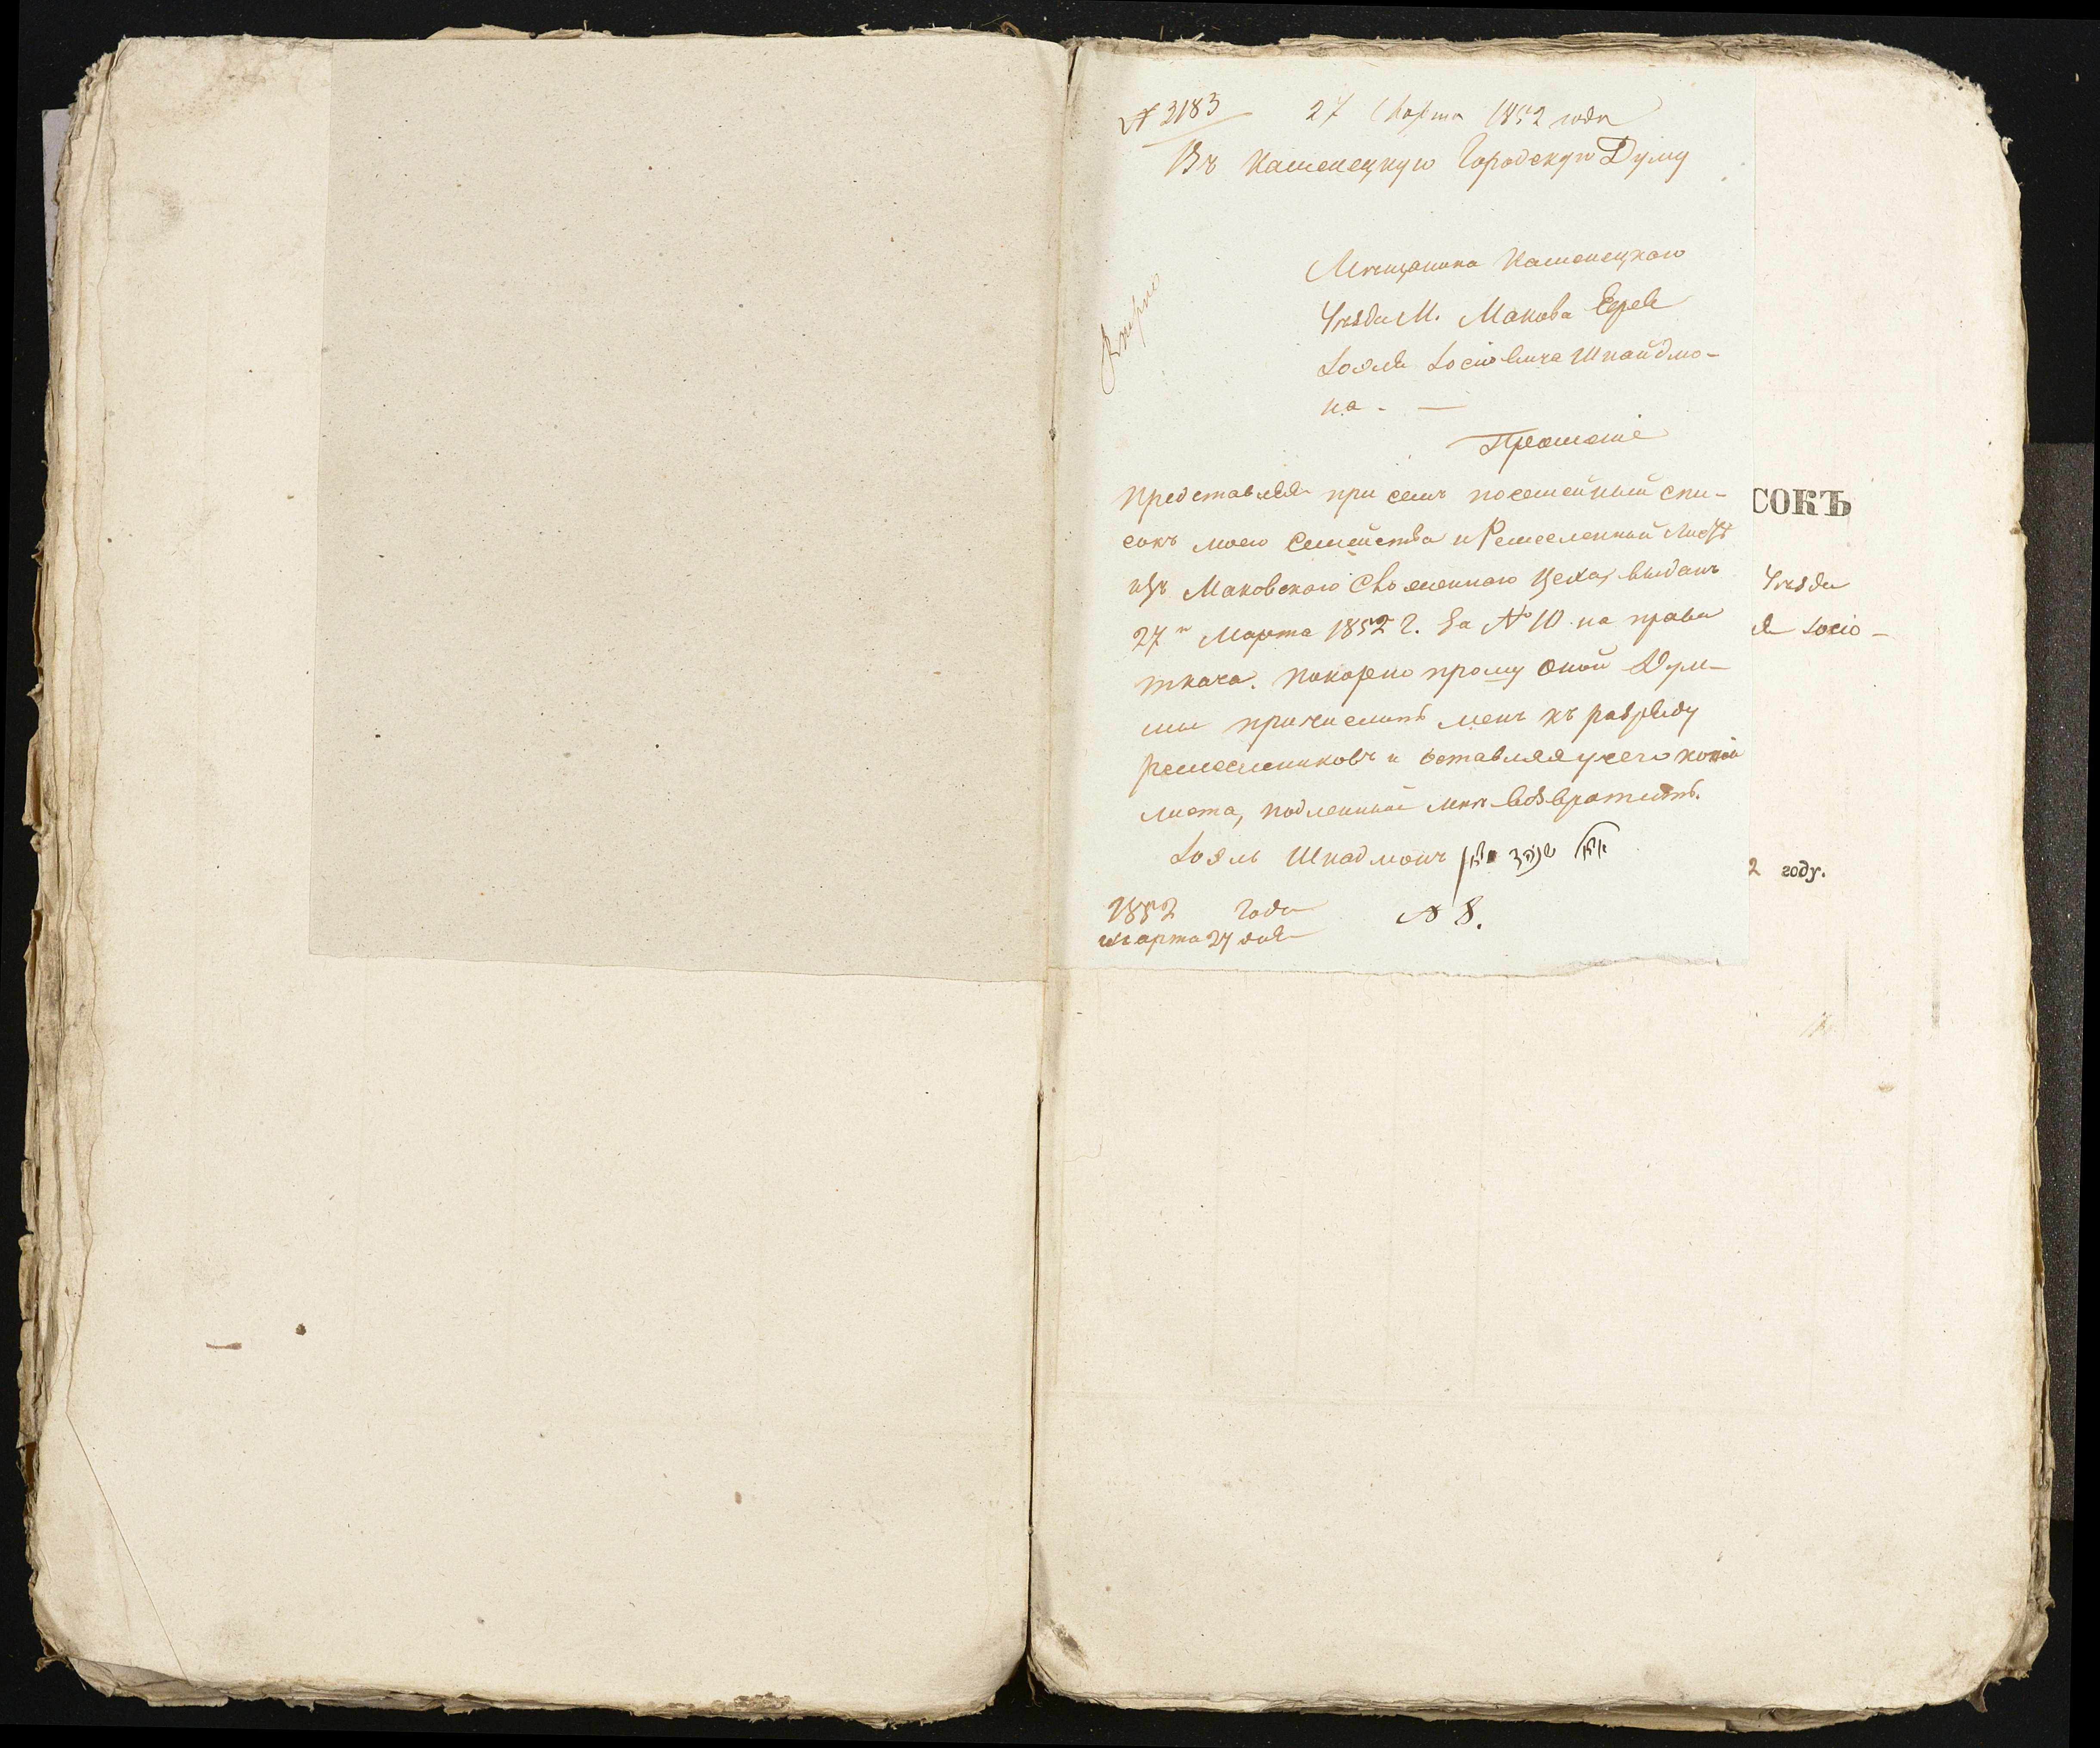 № 3183 27 Марта 1852 года
Въ Каменецкую Городскую Думу
Мещанина Каменецкаго
Уезда М. Макова Еврея
Іося Іосіовича Шнайдмо-
на. —
Прошеніе
Представляя при семъ посемейный спи-
сокъ моего Семейства и Ремесленный Листъ
изъ Маковскаго цеха, выданъ
27 Марта 1852 г. за № 10 на права
ткача. Покорно прошу оной Дум-
мы причислить менъ къ разряду
ремеслениковъ и оставляя у сего копіи
листа, подленный мне возвратить.
1852 Года
Марта 27 дня № 8.
СОКЪ
Уезда
Іосіо-
2 году.